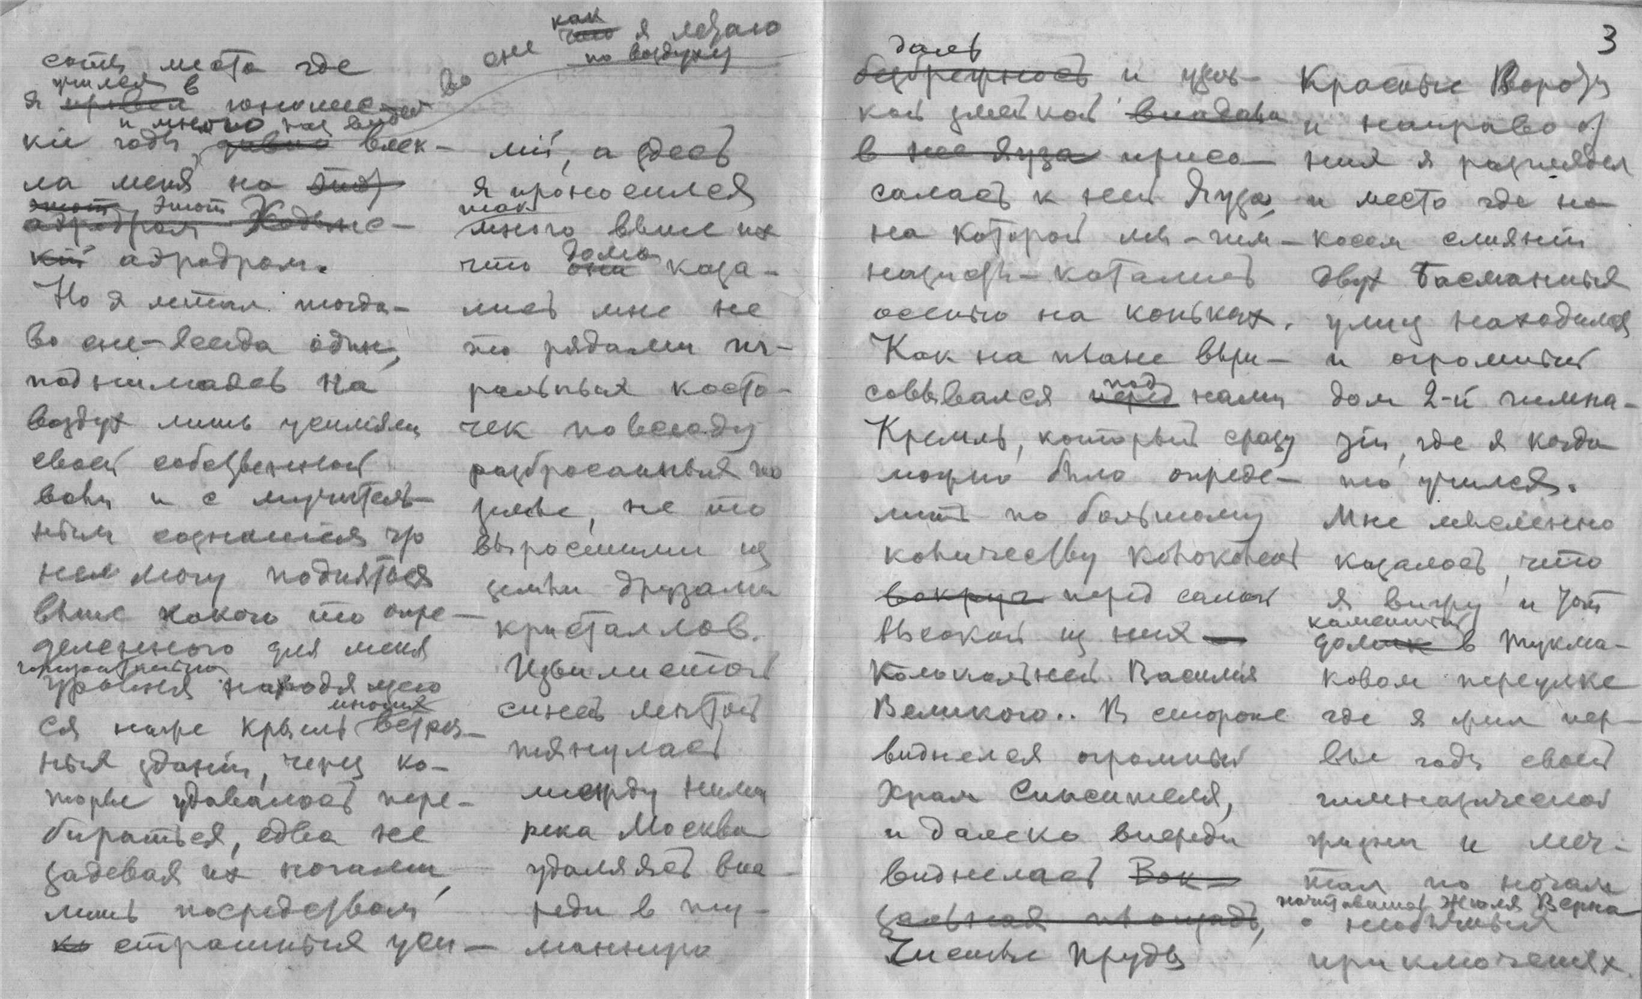 во сне как я летаю
по воздуху
соты места где
учился в
я провел юношес-
и много раз видел
кие годы, давно влек-
ла меня на этот
этот этот
аэродром Ходынс-
кий аэродром.
Но я летал тогда-
во сне-всегда один,
поднимаясь на
воздух лишь усилиям
своей собственной
воли и с мучитель-
ным сознанием что
не могу подняться
выше какого то опре-
деленного для меня
горизонтального
уровня находящего
многих
ся ниже крыш встреч-
ных зданий, через ко-
торые удавалось пере-
бираться, едва не
задевая их ногами,
лишь посредством
ко страшных уси-
лий, а здесь
я проносился
так
много выше их
дома
что они каза-
лись мне не
то рядами иг-
ральных косто-
чек повсюду
разбросанных по
земле, не то
выросшими из
земли друзами
кристаллов.
Извилистой
синей лентой
тянулась
между ними
река Москва
удаляясь впе-
реди в ту-
манную
3
даль
безбрежность и узень-
кой змейкой впадала
в нее Яуза приса-
салась к ней Яуза,
на которой мы-гим-
назисты-катались
осенью на коньках.
Как на плане выри-
под
совывался перед нами
Кремль, который сразу
можно было опреде-
лить по большому
количеству колоколен
вокруг перед самой
высокой из них
колокольней Василия
Великого.. В стороне
виднелся огромный
Храм Спасителя,
и далеко впереди
виднелась Вок-
зальная площадь,
Чистые Пруды
Красные Ворота
и направо от
них я разглядел
и место где на-
косом слиянии
двух Басманных
улиц находился
и огромный
дом 2-й гимна-
зии, где я когда
то учился.
Мне мысленно
казалось, что
я вижу и тот
каменный
домик в Токма-
ковом переулке
где я жил пер-
вые годы своей
гимназической
жизни и меч-
тал по ночам
начитавшись Жюля Верна
о необычных
приключениях.